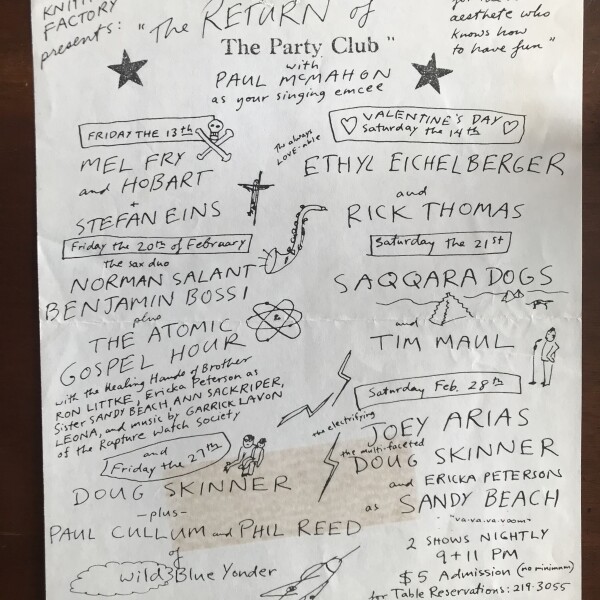 KNITTING
FACTORY
presents:
"The RETURN of
The Party Club"
with
PAUL McMAHON
as your singing emcee
aesthete who
knows how
to have fun"
FRIDAY THE 13th
MEL FRY
and HOBART
+
STEFAN EINS
VALENTINE'S DAY
Saturday the 14th
the always
LOVE-able
ETHYL EICHELBERGER
and
RICK THOMAS
Friday the 20th of February
the sax duo
NORMAN SALANT
BENJAMIN BOSSI
plus
THE ATOMIC
GOSPEL HOUR
with the Healing Hands of Brother
RON LITTKE, Ericka Peterson as
Sister SANDY BEACH, ANN SACKRIDER,
LEONA, and music by GARRICK LAVON
of the Rapture Watch Society
Saturday the 21st
SAQQARA DOGS
and
TIM MAUL
and
Friday the 27th
DOUG SKINNER
-plus-
PAUL CULLUM and PHIL REED
of
Wild Blue Yonder
Saturday Feb. 28th
the electrifying
JOEY ARIAS
the multi-faceted
DOUG SKINNER
and ERICKA PETERSON
as SANDY BEACH
"va-va-va-voom"
2 SHOWS NIGHTLY
9+11 PM
$5 Admission (no minimum)
for Table Reservations: 219-3055